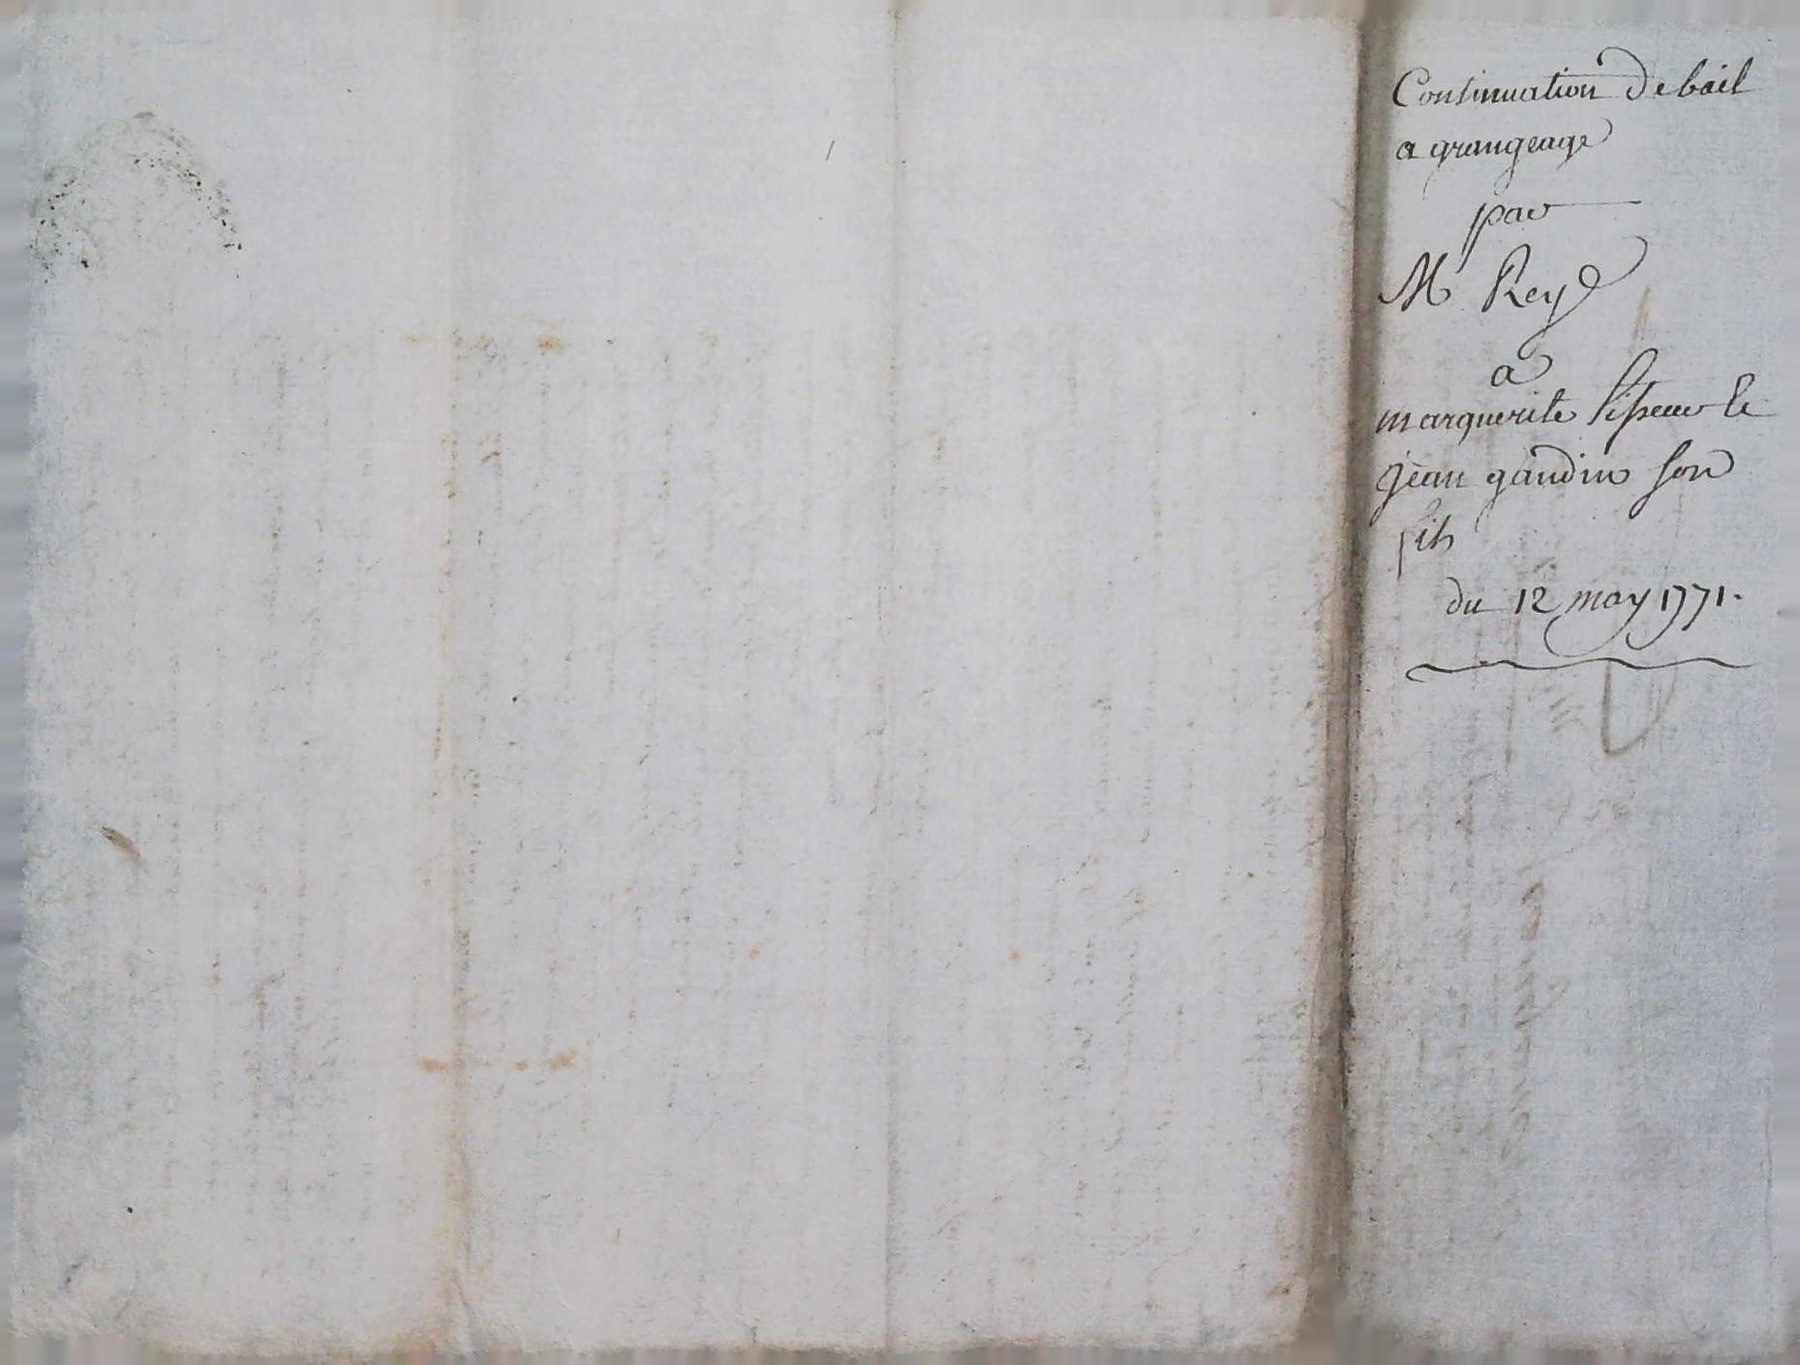 Continuation De bail
a grangeage
par
M Rey
a
marguerite et
jean gandin son
fils
du 12 may 1771.